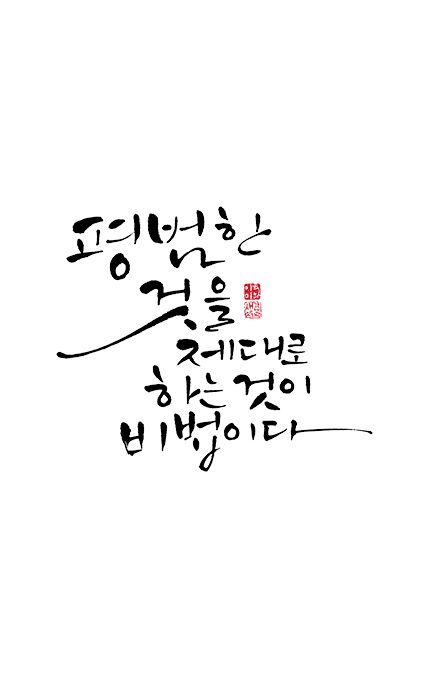 평범한
것을
제대로
하는 것이
비법이다